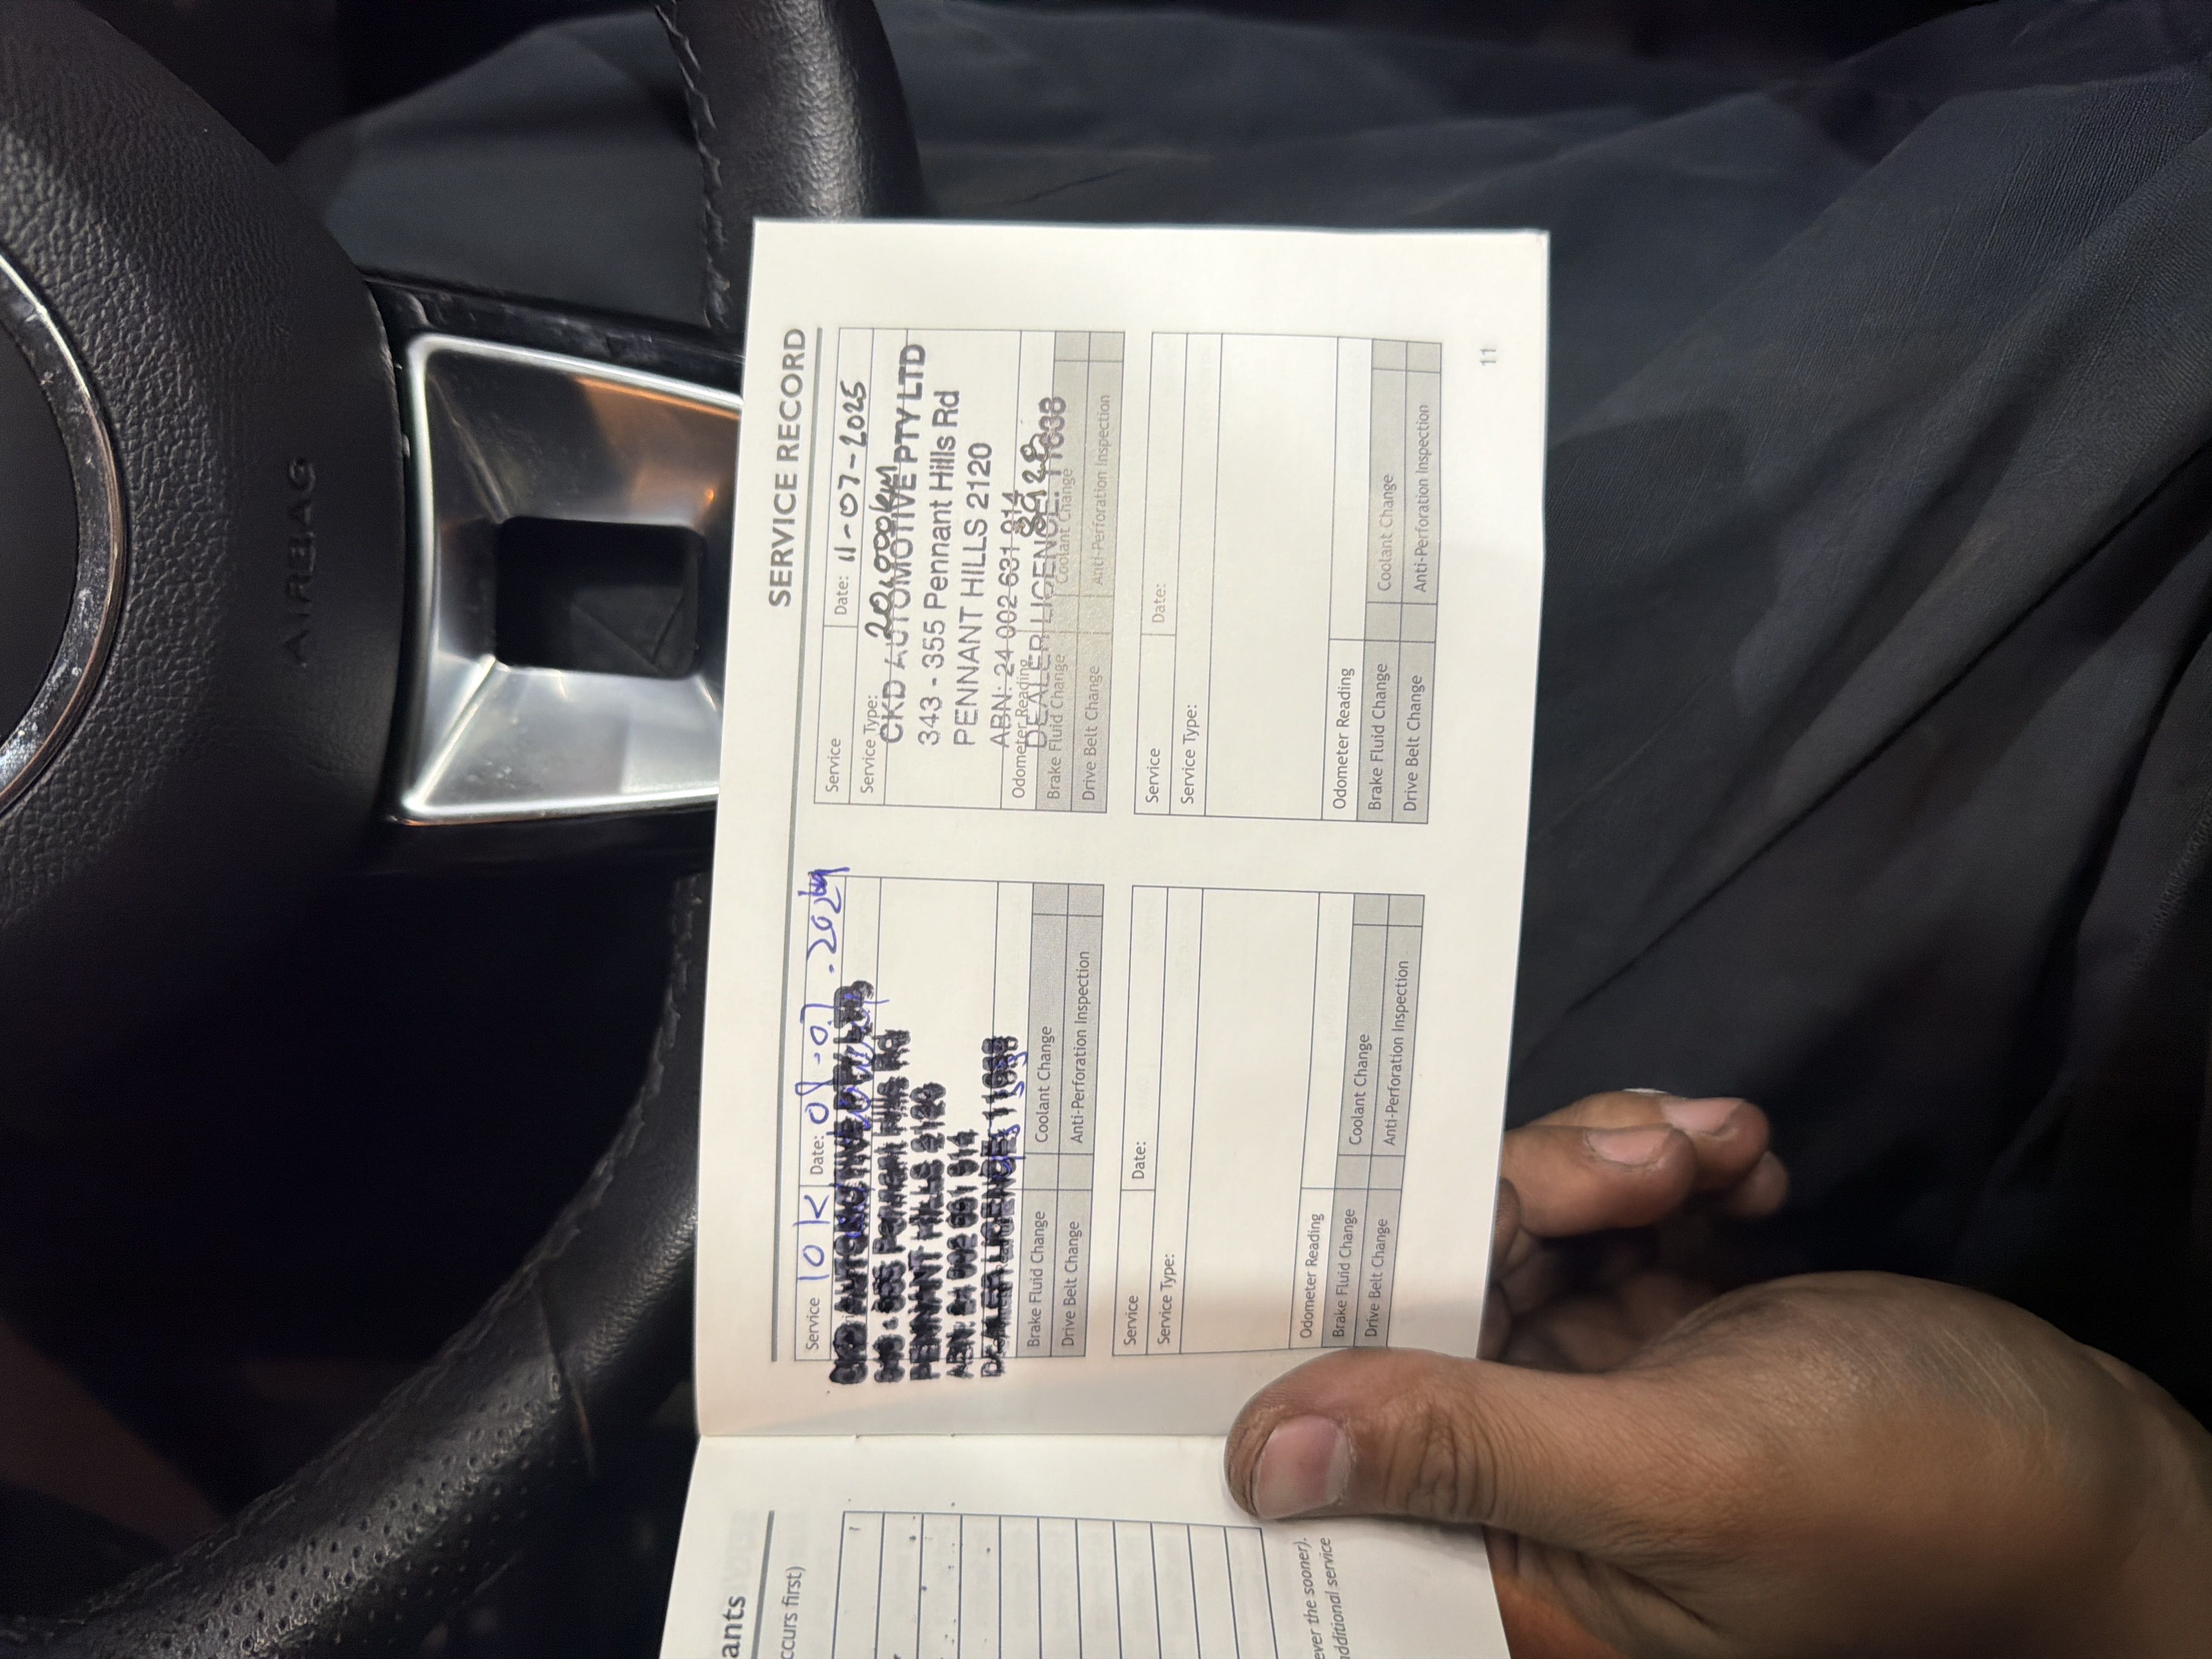 AIRBAG
SERVICE RECORD
Service 10K Date: 08-07.2024
CKD AUTOMOTIVE PTY LTD
343 - 355 Pennant Hills Rd
PENNANT HILLS 2120
ABN: 24 002 631 914
DEALER LICENCE: 11638
Brake Fluid Change Coolant Change
Drive Belt Change Anti-Perforation Inspection
Service Date: 11-07-2025
Service Type: 20,000km
CKD AUTOMOTIVE PTY LTD
343 - 355 Pennant Hills Rd
PENNANT HILLS 2120
ABN: 24 002 631 914
Odometer Reading
DEALER LICENCE: 11638
Brake Fluid Change Coolant Change
Drive Belt Change Anti-Perforation Inspection
Service Date:
Service Type:
Odometer Reading
Brake Fluid Change Coolant Change
Drive Belt Change Anti-Perforation Inspection
Service Date:
Service Type:
Odometer Reading
Brake Fluid Change Coolant Change
Drive Belt Change Anti-Perforation Inspection
11
ants
ccurs first)
ever the sooner).
additional service